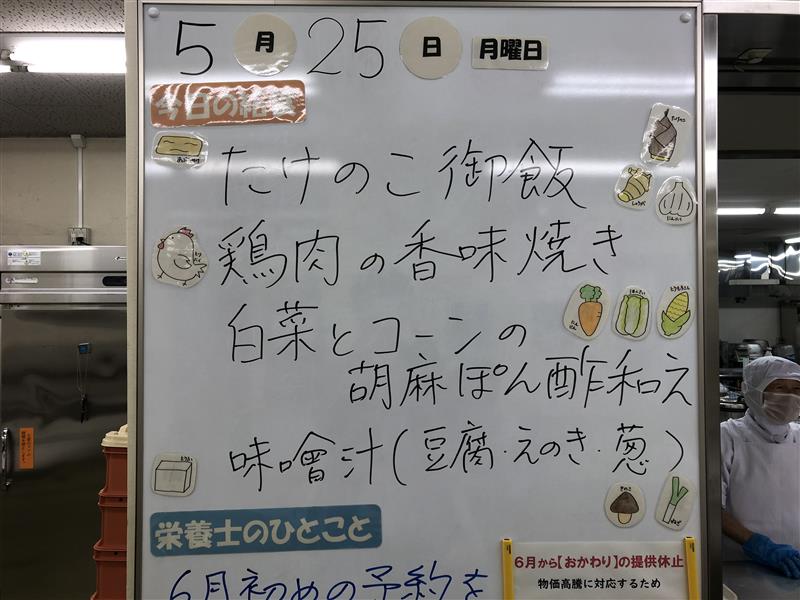 5月25日 月曜日
今日の給食
たけのこ御飯
鶏肉の香味焼き
白菜とコーンの
胡麻ぽん酢和え
味噌汁(豆腐・えのき・葱)
栄養士のひとこと
6月初めの予約を
6月から【おかわり】の提供休止
物価高騰に対応するため